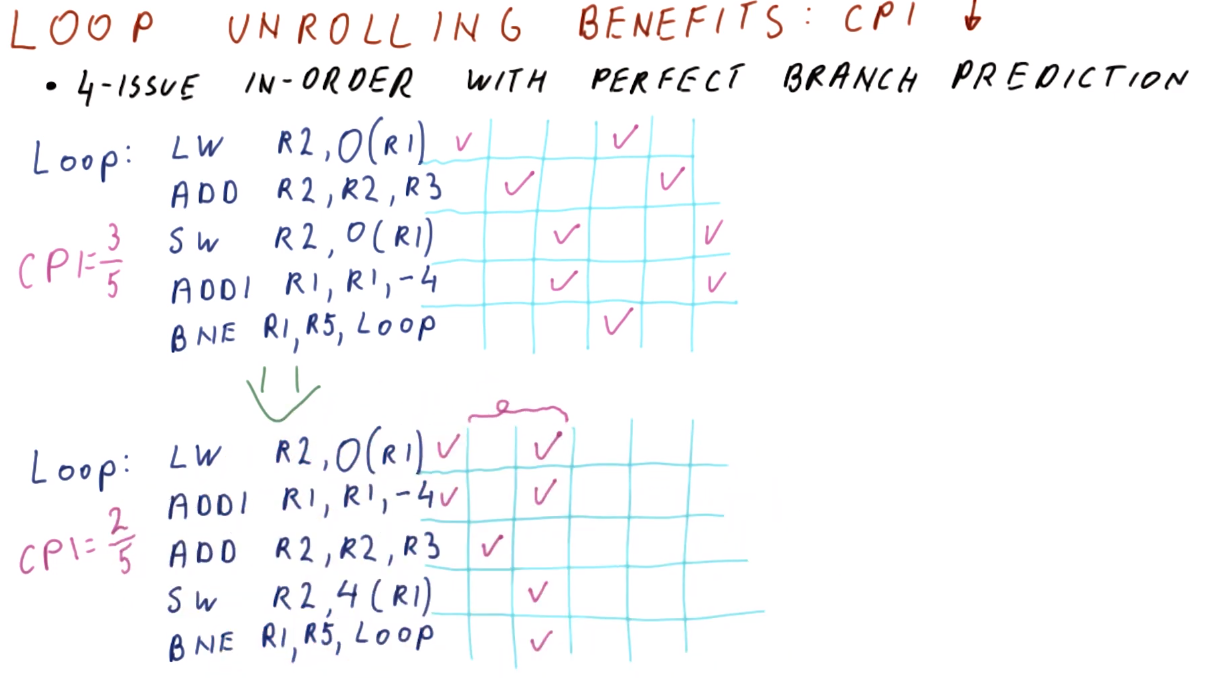 LOOP UNROLLING BENEFITS: CPI ↓
• 4-ISSUE IN-ORDER WITH PERFECT BRANCH PREDICTION
Loop: LW R2,0(R1) ✓ ✓
ADD R2,R2,R3 ✓ ✓
SW R2,0(R1) ✓ ✓
CPI=3/5
ADDI R1,R1,-4 ✓ ✓
BNE R1,R5,Loop ✓
Loop: LW R2,0(R1) ✓ ✓
ADDI R1,R1,-4 ✓ ✓
CPI=2/5
ADD R2,R2,R3 ✓
SW R2,4(R1) ✓
BNE R1,R5,Loop ✓